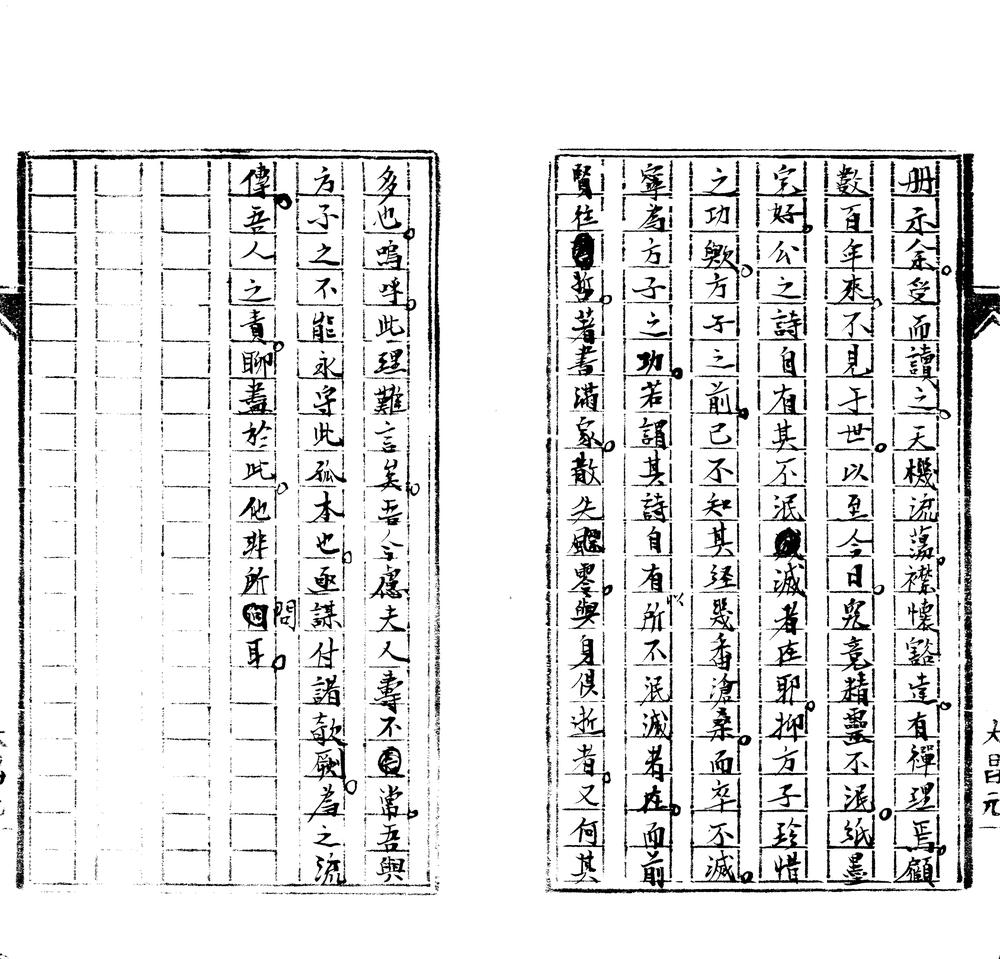 册示余受而讀之天機流蕩襟懷豁達有禪理焉顧
數百年來不見于世以至今日究竟精靈不泯紙墨
完好公之詩自有其不泯滅者在耶抑方子珍惜
之功歟方子之前已不知其經幾番滄桑而卒不滅
寧為方子之功若謂其詩自有所以不泯滅者在而前
賢往哲著書滿家散失飄零與身俱逝者又何其
多也嗚呼此理難言矣吾今慮夫人壽不常吾與
方子之不能永守此孤本也亟謀付諸欹劂為之流
傳吾人之責聊盡於此他非所問耳